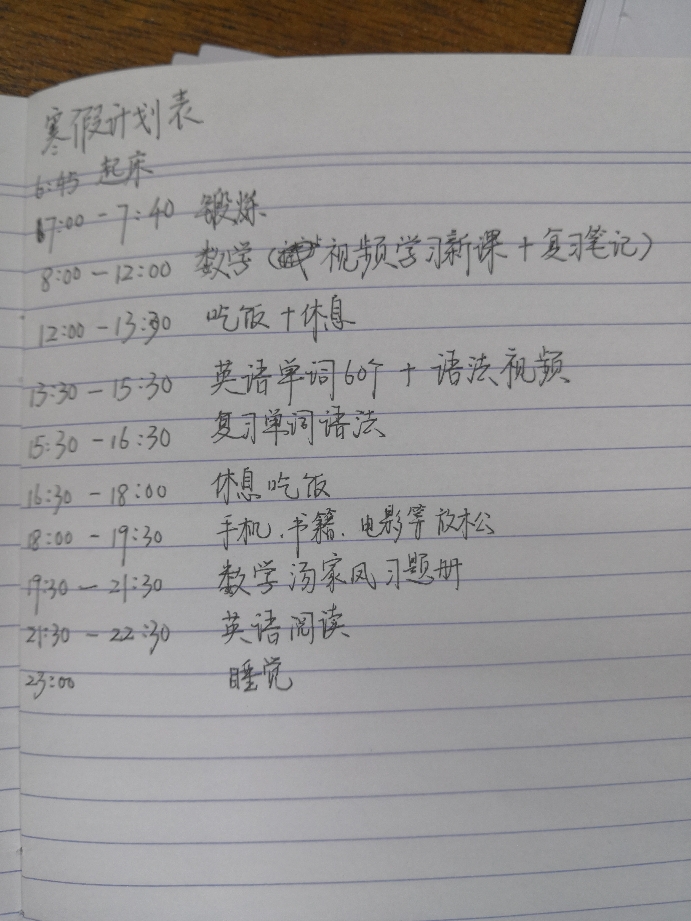 寒假计划表
6:45 起床
7:00-7:40 锻炼
8:00-12:00 数学(视频学习新课+复习笔记)
12:00-13:30 吃饭+休息
13:30-15:30 英语单词60个+语法视频
15:30-16:30 复习单词语法
16:30-18:00 休息吃饭
18:00-19:30 手机、书籍、电影等放松
19:30-21:30 数学汤家凤习题册
21:30-22:30 英语阅读
23:00 睡觉